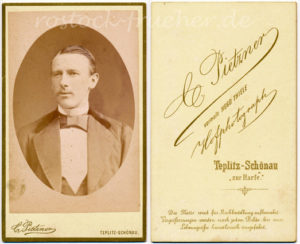 rostock-frueher.de
C. Pietzner
TEPLITZ-SCHÖNAU.
C. Pietzner
vormals HUGO THIELE
Hofphotograph
Teplitz-Schönau
"zur Harfe."
Die Platte wird für Nachbestellung aufbewahrt.
Vergrösserungen werden nach jedem Bilde bis zur
Lebensgrösse künstlerisch ausgeführt.